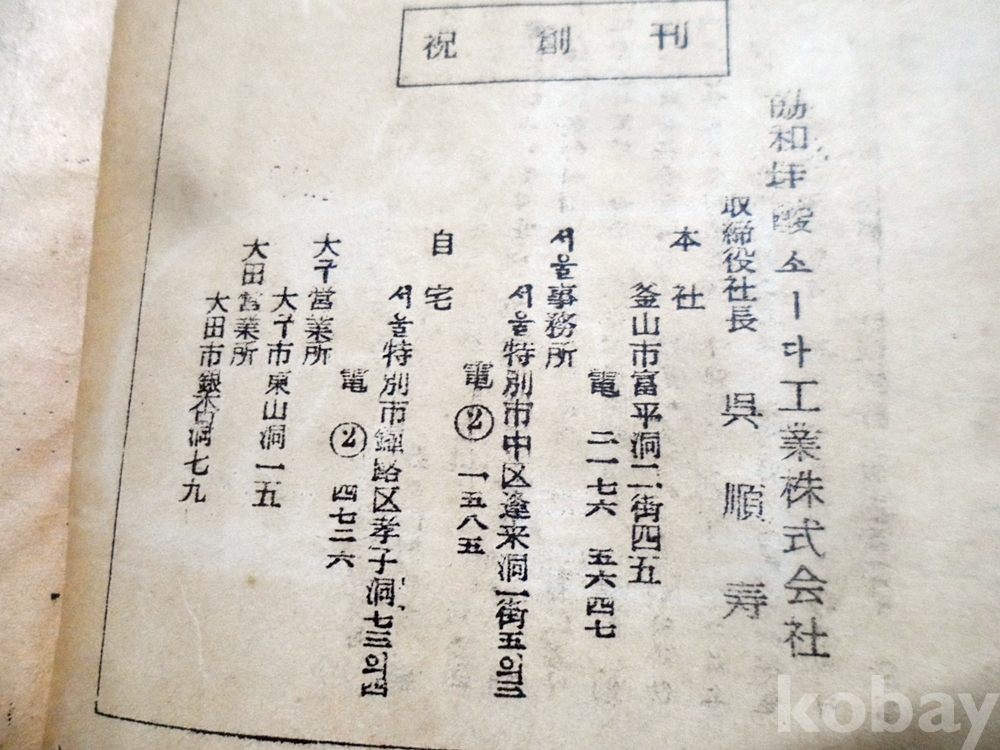 祝創刊
協和 酸소ー다工業株式会社
取締役社長 呉順寿
本社
釜山市富平洞二街四五
電 二一七六 五六四七
서울事務所
서울特別市中区蓬来洞一街五의
電② 一五八五
自宅
서울特別市鍾路区孝子洞七三의
電② 四七二六
大구営業所
大구市東山洞一五
大田営業所
大田市銀杏洞七九
kobay